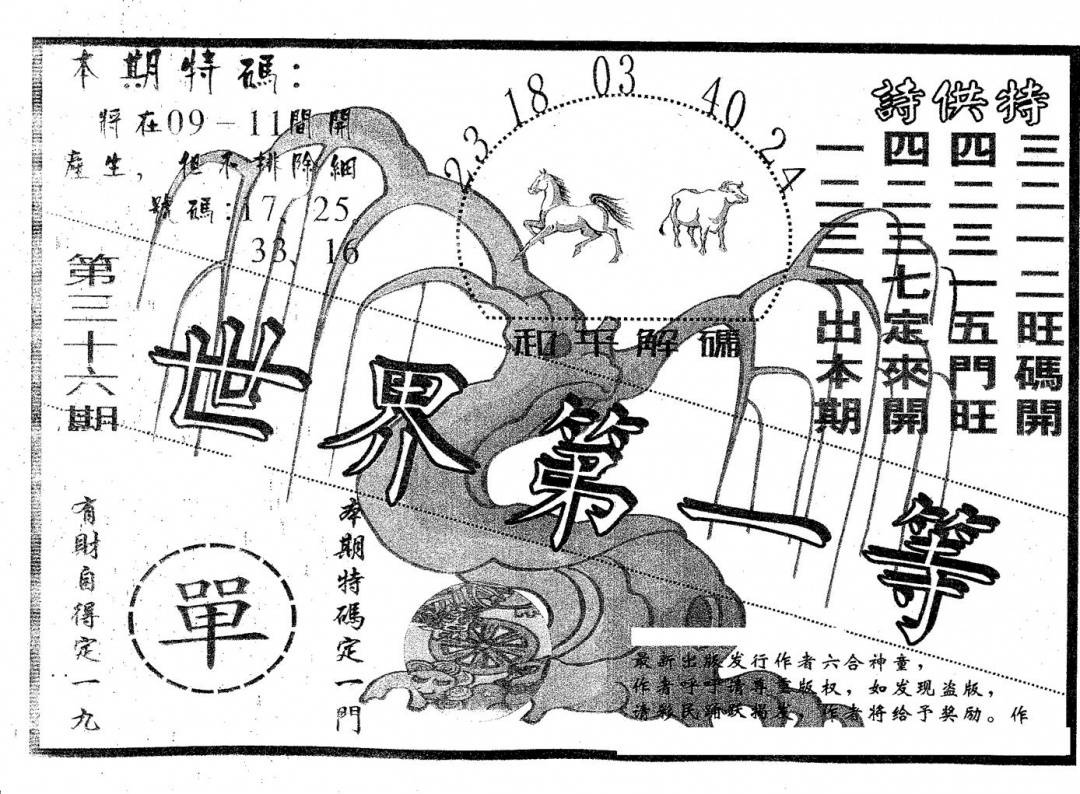 本期特碼：
將在09－11間開
產生，但不排除細
號碼：17、25、
33、16
第三十六期
23 18 03 40 24
和平解碼
特供詩
三二一二旺碼開
四二三一五門旺
四二三七定來開
一二三一出本期
世界第一等
有財自得定一九
單
本期特碼定一門
最新出版发行作者六合神童，
作者呼吁请尊重版权，如发现盗版，
请彩民踊跃揭发，作者将给予奖励。作